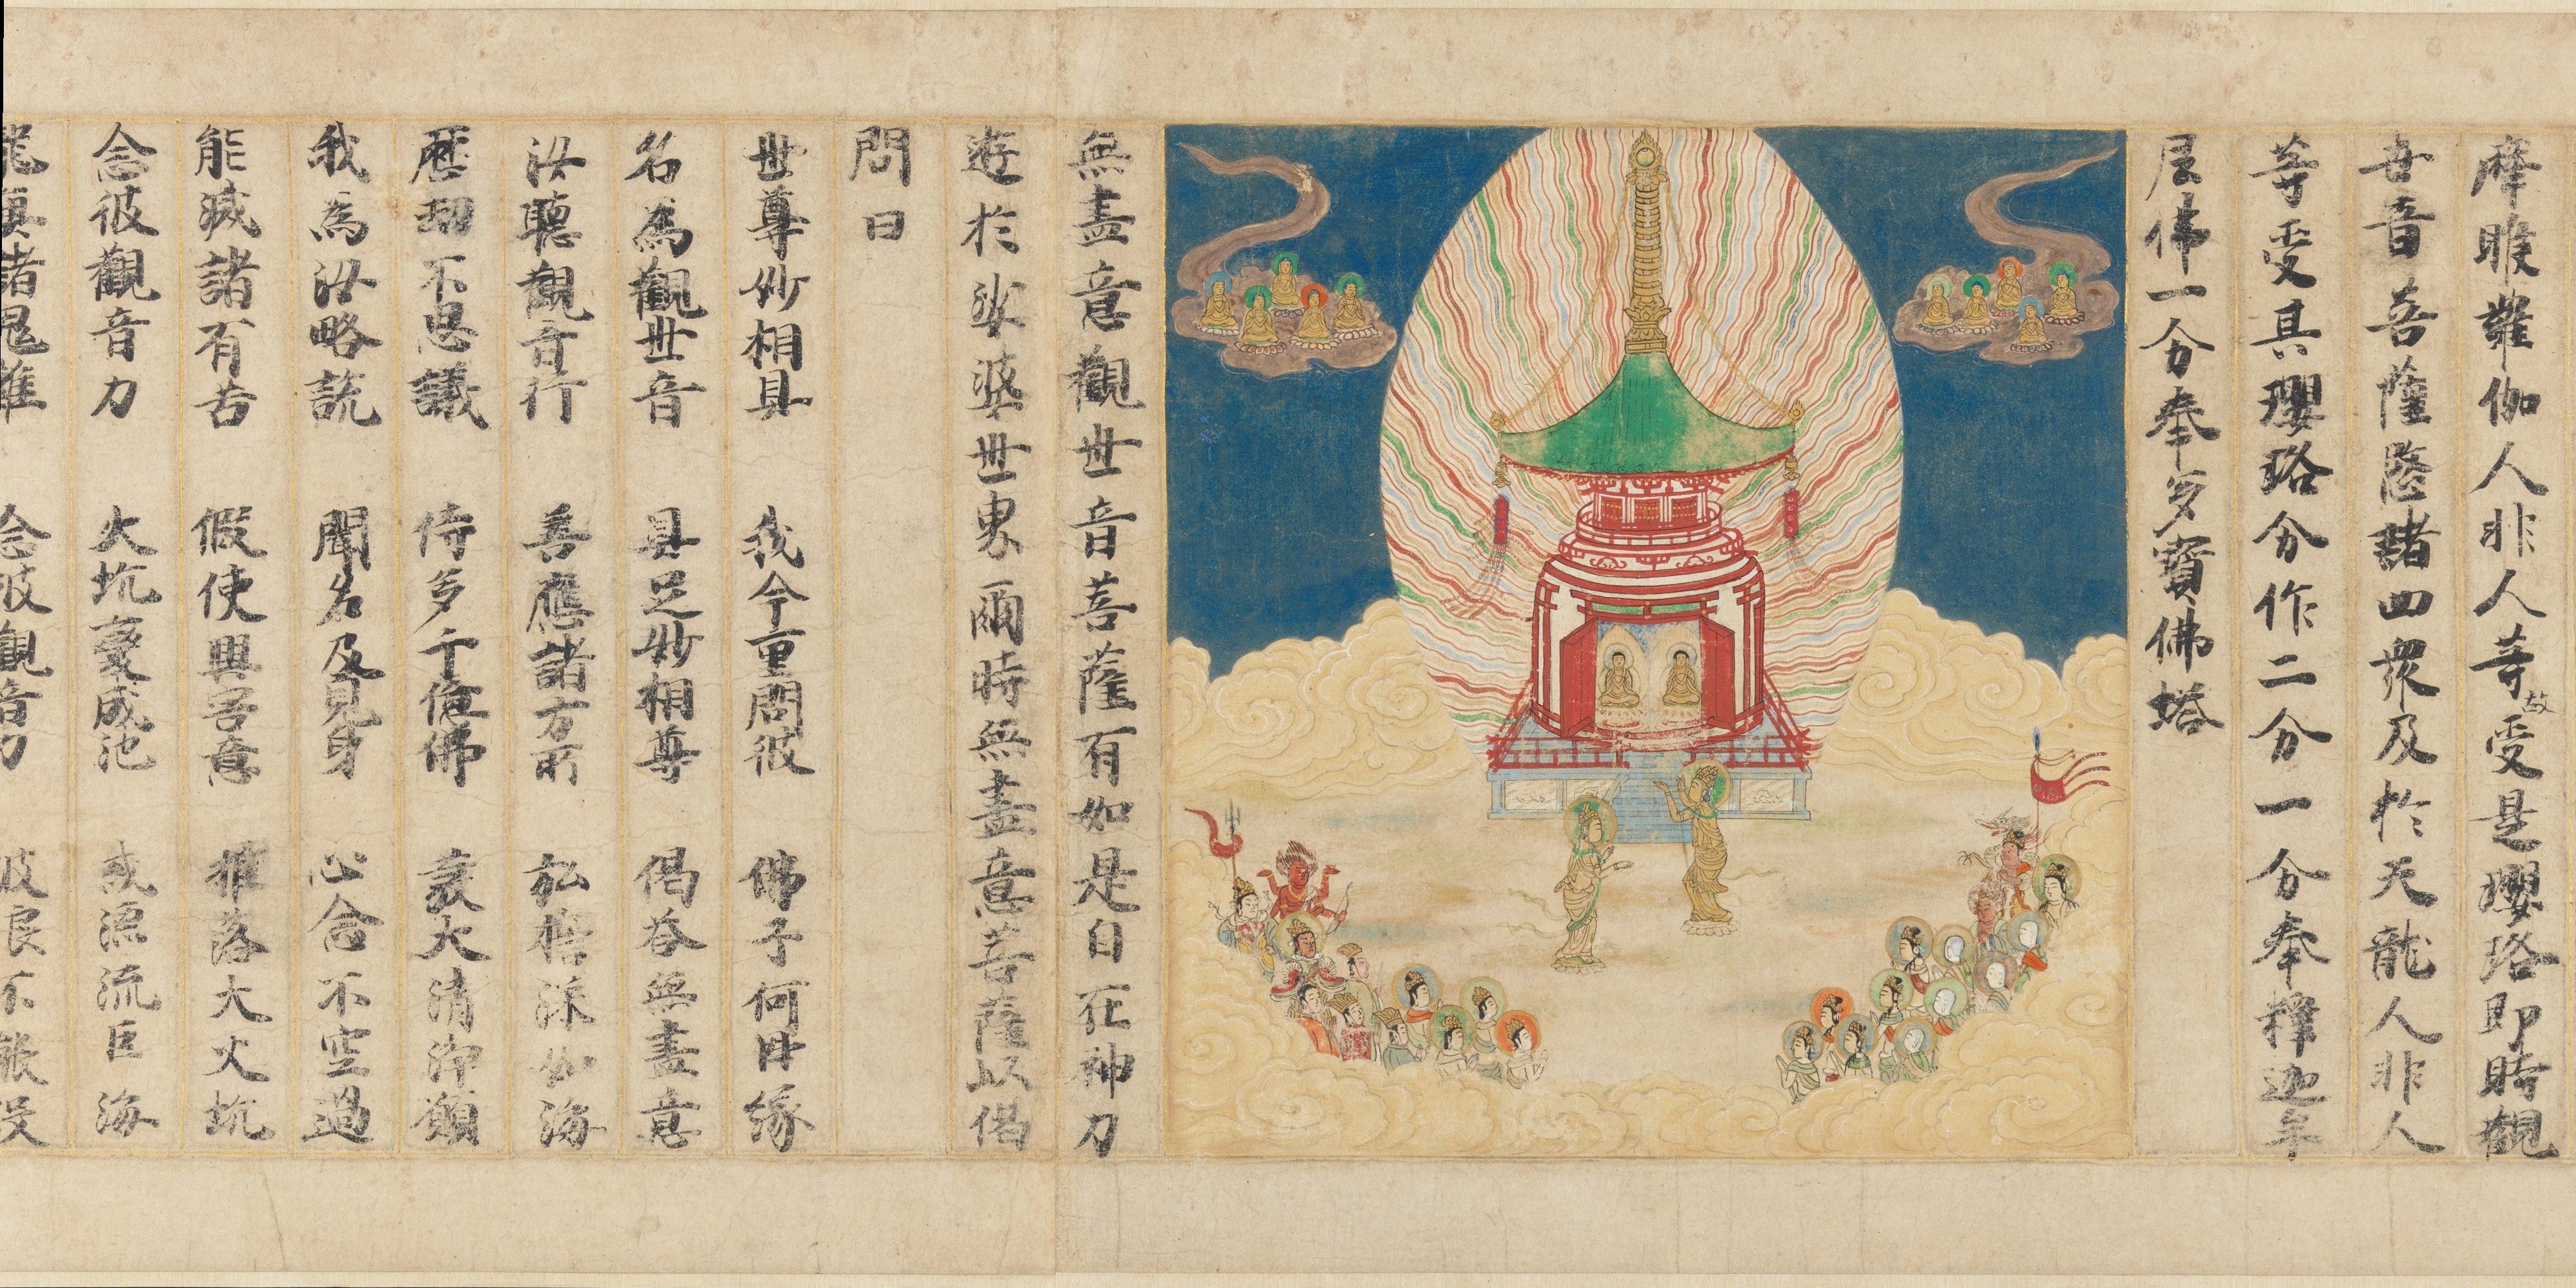 睺羅伽人非人等故受是瓔珞即時觀
世音菩薩愍諸四衆及於天龍人非人
等受其瓔珞分作二分一分奉釋迦牟
尼佛一分奉多寶佛塔
無盡意觀世音菩薩有如是自在神力
遊於娑婆世界爾時無盡意菩薩以偈
問曰
世尊妙相具 我今重問彼 佛子何因緣
名為觀世音 具足妙相尊 偈答無盡意
汝聽觀音行 善應諸方所 弘誓深如海
歷劫不思議 侍多千億佛 發大清淨願
我為汝略說 聞名及見身 心念不空過
能滅諸有苦 假使興害意 推落大火坑
念彼觀音力 火坑變成池 或漂流巨海
龍魚諸鬼難 念彼觀音力 波浪不能沒